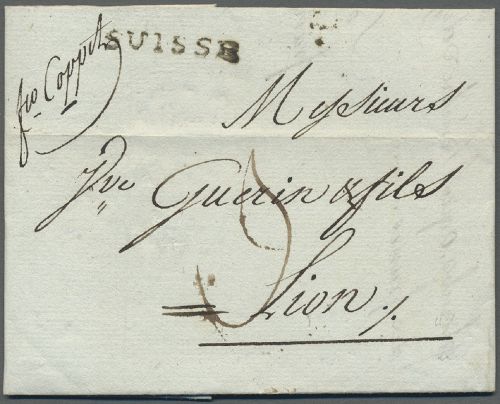 SUISSE
fro Coppet
Messieurs
Vve Guerin & fils
Lion